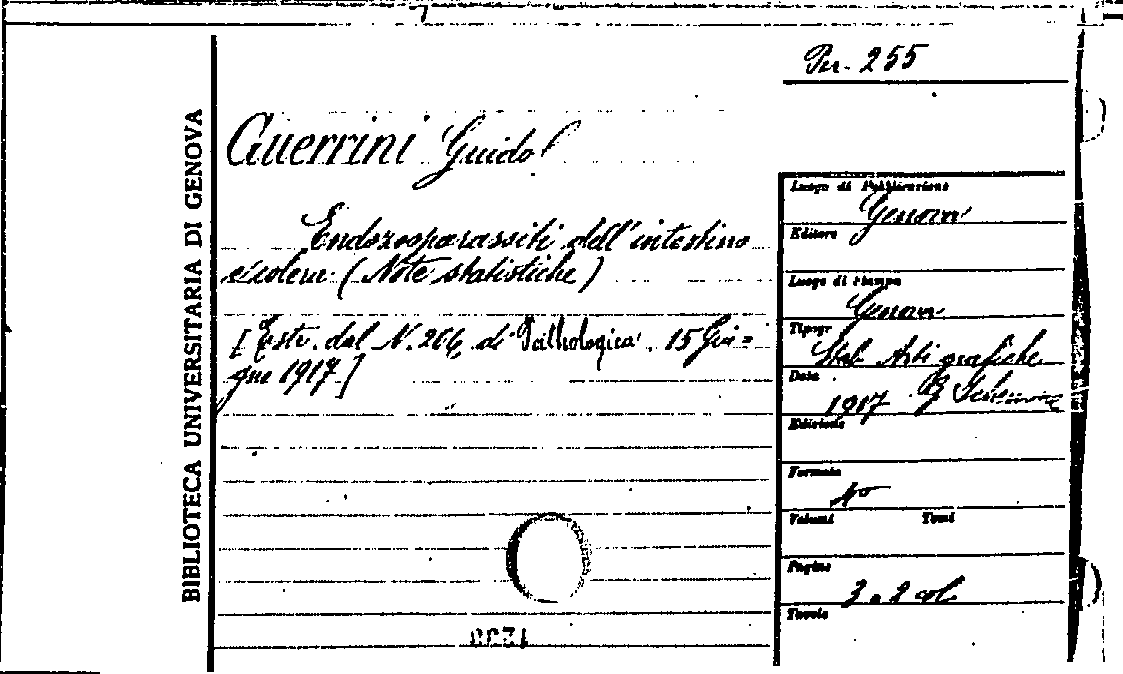 Per. 255
BIBLIOTECA UNIVERSITARIA DI GENOVA
Guerrini Guido
Endozooparassiti dell'intestino
e colera (Note statistiche)
[Estr. dal N. 206, di Pathologica. 15 Giu=
gno 1917.]
Luogo di Pubblicazione
Genova
Editore
Luogo di stampa
Genova
Tipogr
Stab Arti grafiche
Data
1917 G.
Edizione
Formato
4°
Volumi Tomi
Pagine
3 a 2 col.
Tavole